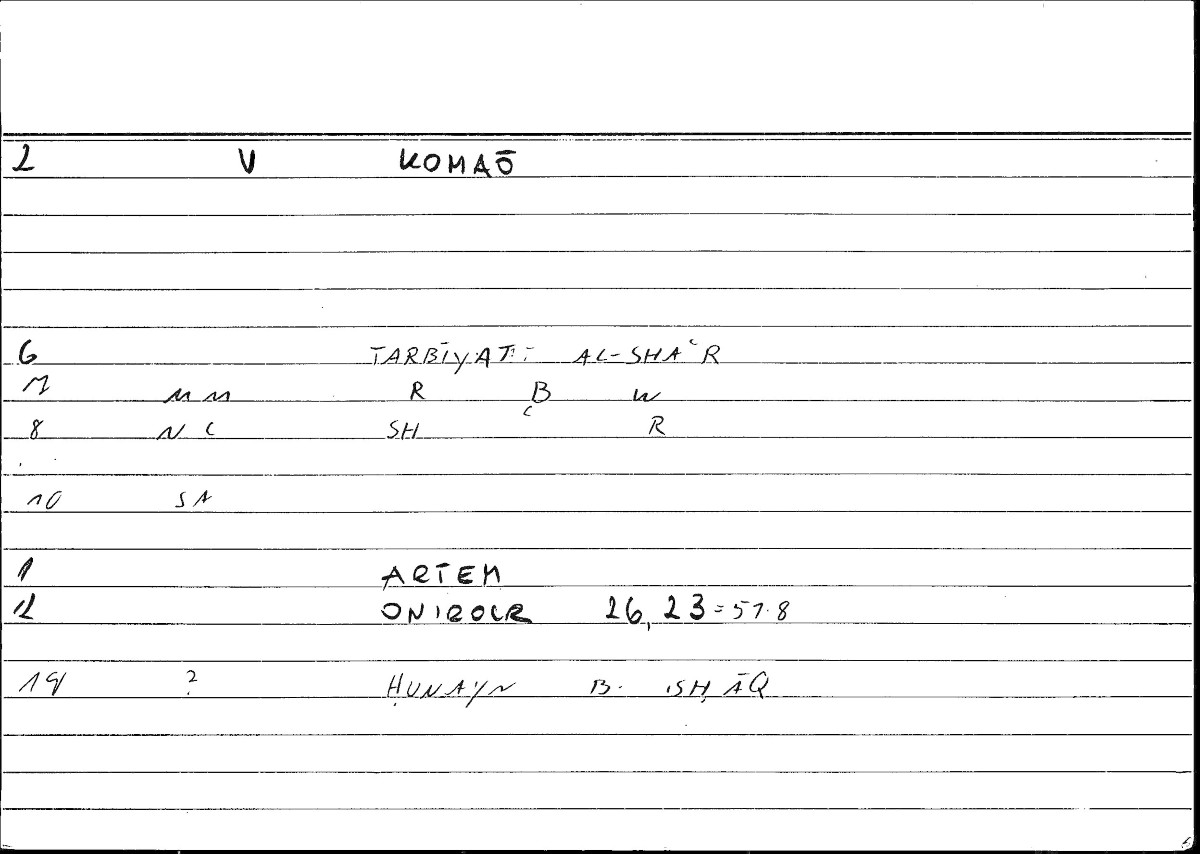 2 V KOMAŌ
6 TARBĪYAT AL-SHAʿR
7 MM R B W
8 N C SH R
10 SA
1 ARTEM
12 ONIROCR 26,23 = 57.8
19 ? ḤUNAYN B. ISḤĀQ